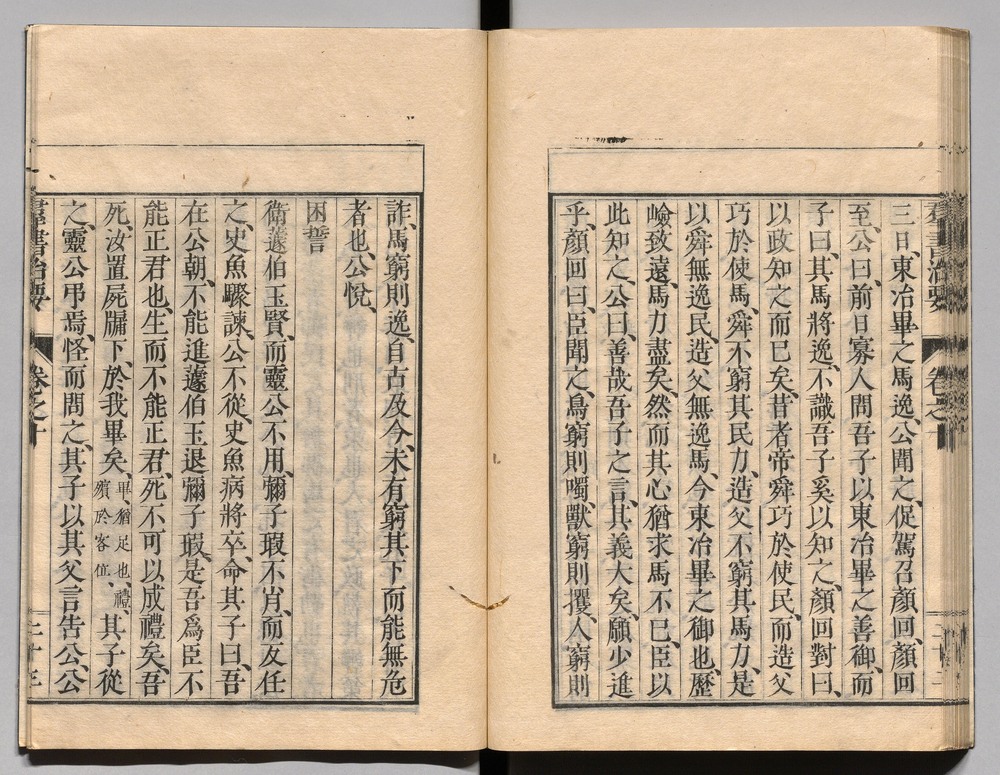 三日、東冶畢之馬逸、公聞之、促駕召顏回、顏回
至、公曰、前日寡人問吾子以東冶畢之善御、而
子曰、其馬將逸、不識吾子奚以知之、顏回對曰、
以政知之而已矣、昔者帝舜巧於使民、而造父
巧於使馬、舜不窮其民力、造父不窮其馬力、是
以舜無逸民、造父無逸馬、今東冶畢之御也、歷
嶮致遠、馬力盡矣、然而其心猶求馬不已、臣以
此知之、公曰、善哉吾子之言、其義大矣、願少進
乎、顏回曰、臣聞之、鳥窮則噣、獸窮則攫、人窮則
詐、馬窮則逸、自古及今、未有窮其下而能無危
者也、公悅、
困誓
衛蘧伯玉賢、而靈公不用、彌子瑕不肖、而反任
之、史魚驟諫、公不從、史魚病將卒、命其子曰、吾
在公朝、不能進蘧伯玉退彌子瑕、是吾爲臣不
能正君也、生而不能正君、死不可以成禮矣、吾
死、汝置屍牖下、於我畢矣、畢、猶足也、禮、殯於客位、其子從
之、靈公弔焉、怪而問之、其子以其父言告公、公
羣書治要 卷之十 二十三